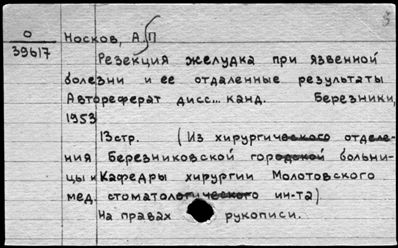 О
39617
Носков, А. П
Резекция желудка при язвенной
болезни и ее отдаленные результаты
Автореферат дисс... канд. Березники,
1953
13стр. (Из хирургического отделе-
ния Березниковской городской больни-
цы и Кафедры хирургии Молотовского
мед. стоматологического ин-та)
На правах рукописи.